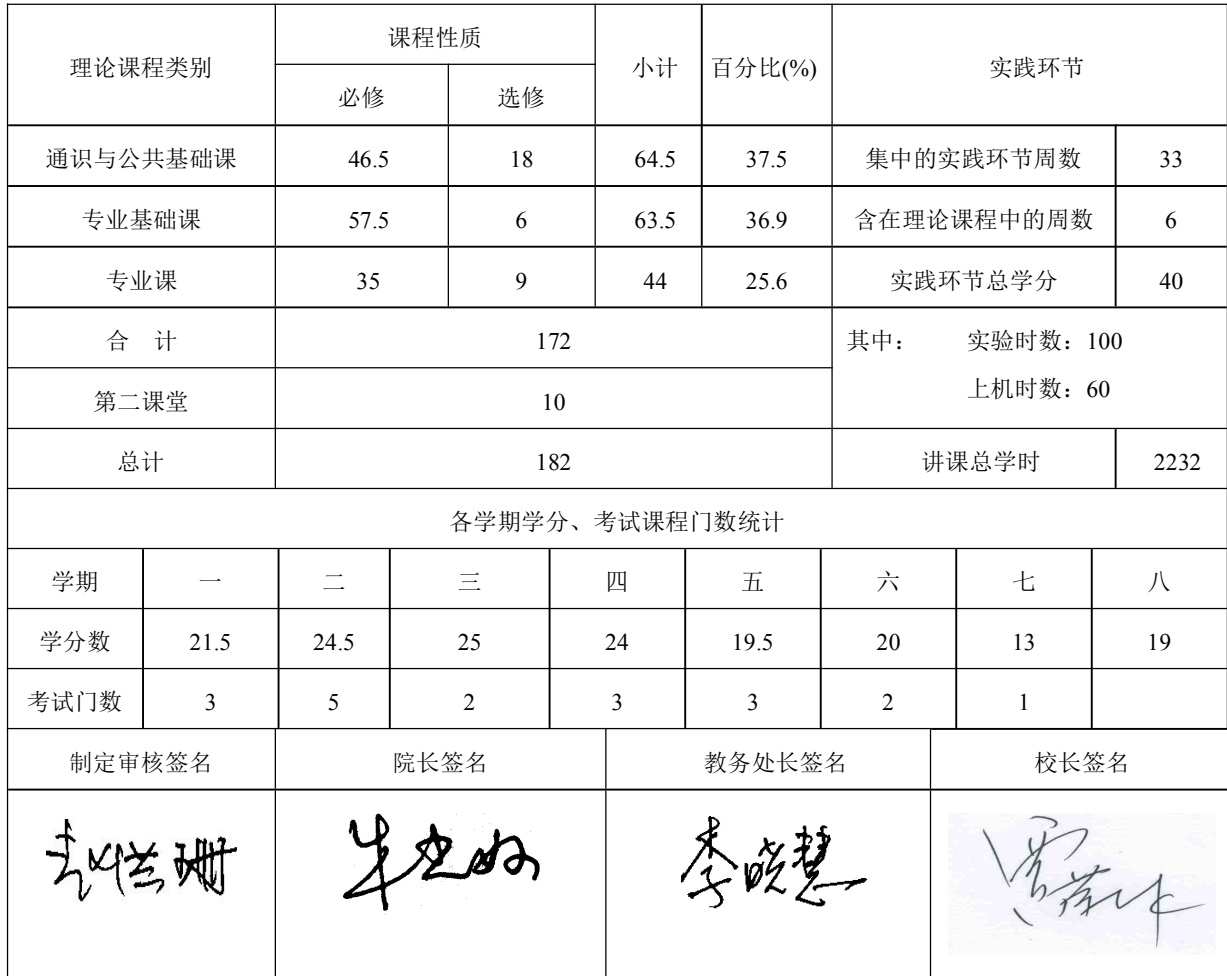 理论课程类别 课程性质 小计 百分比(%) 实践环节
必修 选修
通识与公共基础课 46.5 18 64.5 37.5 集中的实践环节周数 33
专业基础课 57.5 6 63.5 36.9 含在理论课程中的周数 6
专业课 35 9 44 25.6 实践环节总学分 40
合 计 172 其中： 实验时数：100
第二课堂 10 上机时数：60
总计 182 讲课总学时 2232
各学期学分、考试课程门数统计
学期 一 二 三 四 五 六 七 八
学分数 21.5 24.5 25 24 19.5 20 13 19
考试门数 3 5 2 3 3 2 1
制定审核签名 院长签名 教务处长签名 校长签名
李晓慧